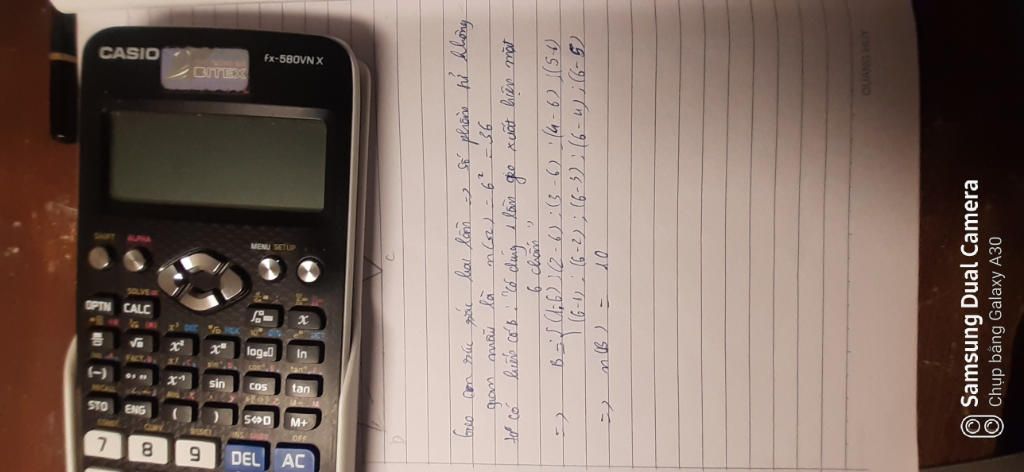 CASIO
fx-580VN X
BITEX
SHIFT
ALPHA
MENU SETUP
OPTN
CALC
SOLVE
x
log
ln
(-)
sin
cos
tan
STO
ENG
(
)
S⇔D
M+
7
8
9
DEL
AC
OFF
Gieo con xúc xắc hai lần => số phần tử không
gian mẫu là n(Ω) = 6² = 36
có biến cố B: "có đúng 1 lần gieo xuất hiện mặt
6 chấm"
=> B = {(1;6);(2-6);(3-6);(4-6);(5-6)
(6-1);(6-2);(6-3);(6-4);(6-5)
=> n(B) = 10
QUANG HUY
Samsung Dual Camera
Chụp bằng Galaxy A30